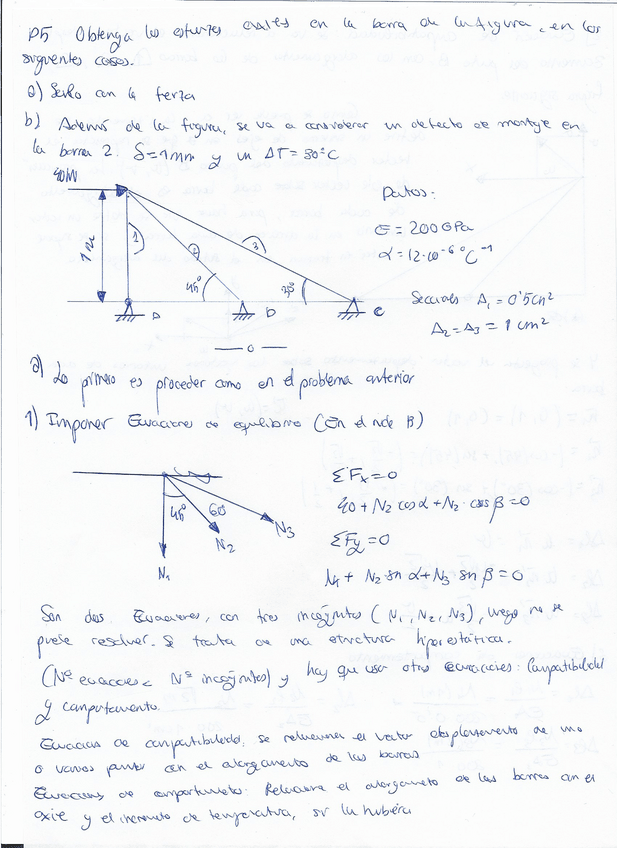 P5 Obtenga los esfuerzos axiles en la barra de la figura, en los
siguientes casos.
a) Solo con la fuerza
b) Además de la figura, se va a considerar un defecto de montaje en
la barra 2. δ=1mm y un ΔT=30°C
40kN
Datos:
1
2
3
E=200GPa
α=12·10⁻⁶ °C⁻¹
45°
30°
A
D
C
Secciones A₁=0'5cm²
A₂=A₃=1cm²
a) Lo primero es proceder como en el problema anterior
1) Imponer Ecuaciones de equilibrio (En el nodo B)
ΣFx=0
40+N₂ cos α+N₂·cos β=0
45°
60
N₃
N₂
ΣFy=0
N₁
N₁+N₂·sn α+N₃ sn β=0
Son dos Ecuaciones, con tres incógnitas (N₁, N₂, N₃), luego no se
puede resolver. Se trata de una estructura hiperestática.
(Nº ecuaciones < Nº incógnitas) y hay que usar otras ecuaciones: Compatibilidad
y comportamiento.
Ecuación de compatibilidad: se relacionan el vector desplazamiento de uno
o varios puntos con el alargamiento de las barras
Ecuaciones de comportamiento: Relaciona el alargamiento de las barras con el
axil y el incremento de temperatura, si la hubiera